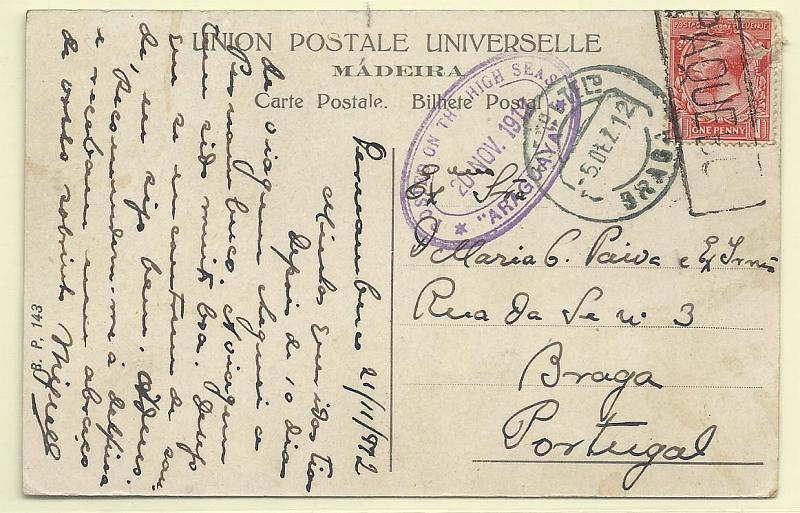 UNION POSTALE UNIVERSELLE
MADEIRA
Carte Postale. Bilhete Postal
POSTAGE REVENUE
ONE PENNY
PAQUE
POSTED ON THE HIGH SEAS
20 NOV. 191
"ARAGUAYA"
BRAGA
5.DEZ.12
Pernambuco 21/11/912
Minhas queridas tias
Depois de 10 dias
de viagem cheguei a
Pernambuco. A viagem
tem sido muito boa. Desejo
que se encontrem de sau
de, eu sijo bem. Adeus.
Recomendem-me á Delfina
e recebam um abraço
do vosso sobrinho Miguel
B. P. 143
Exmas Snras
Maria C. Paiva e Exª Irmãs
Rua da Se nº 3
Braga
Portugal